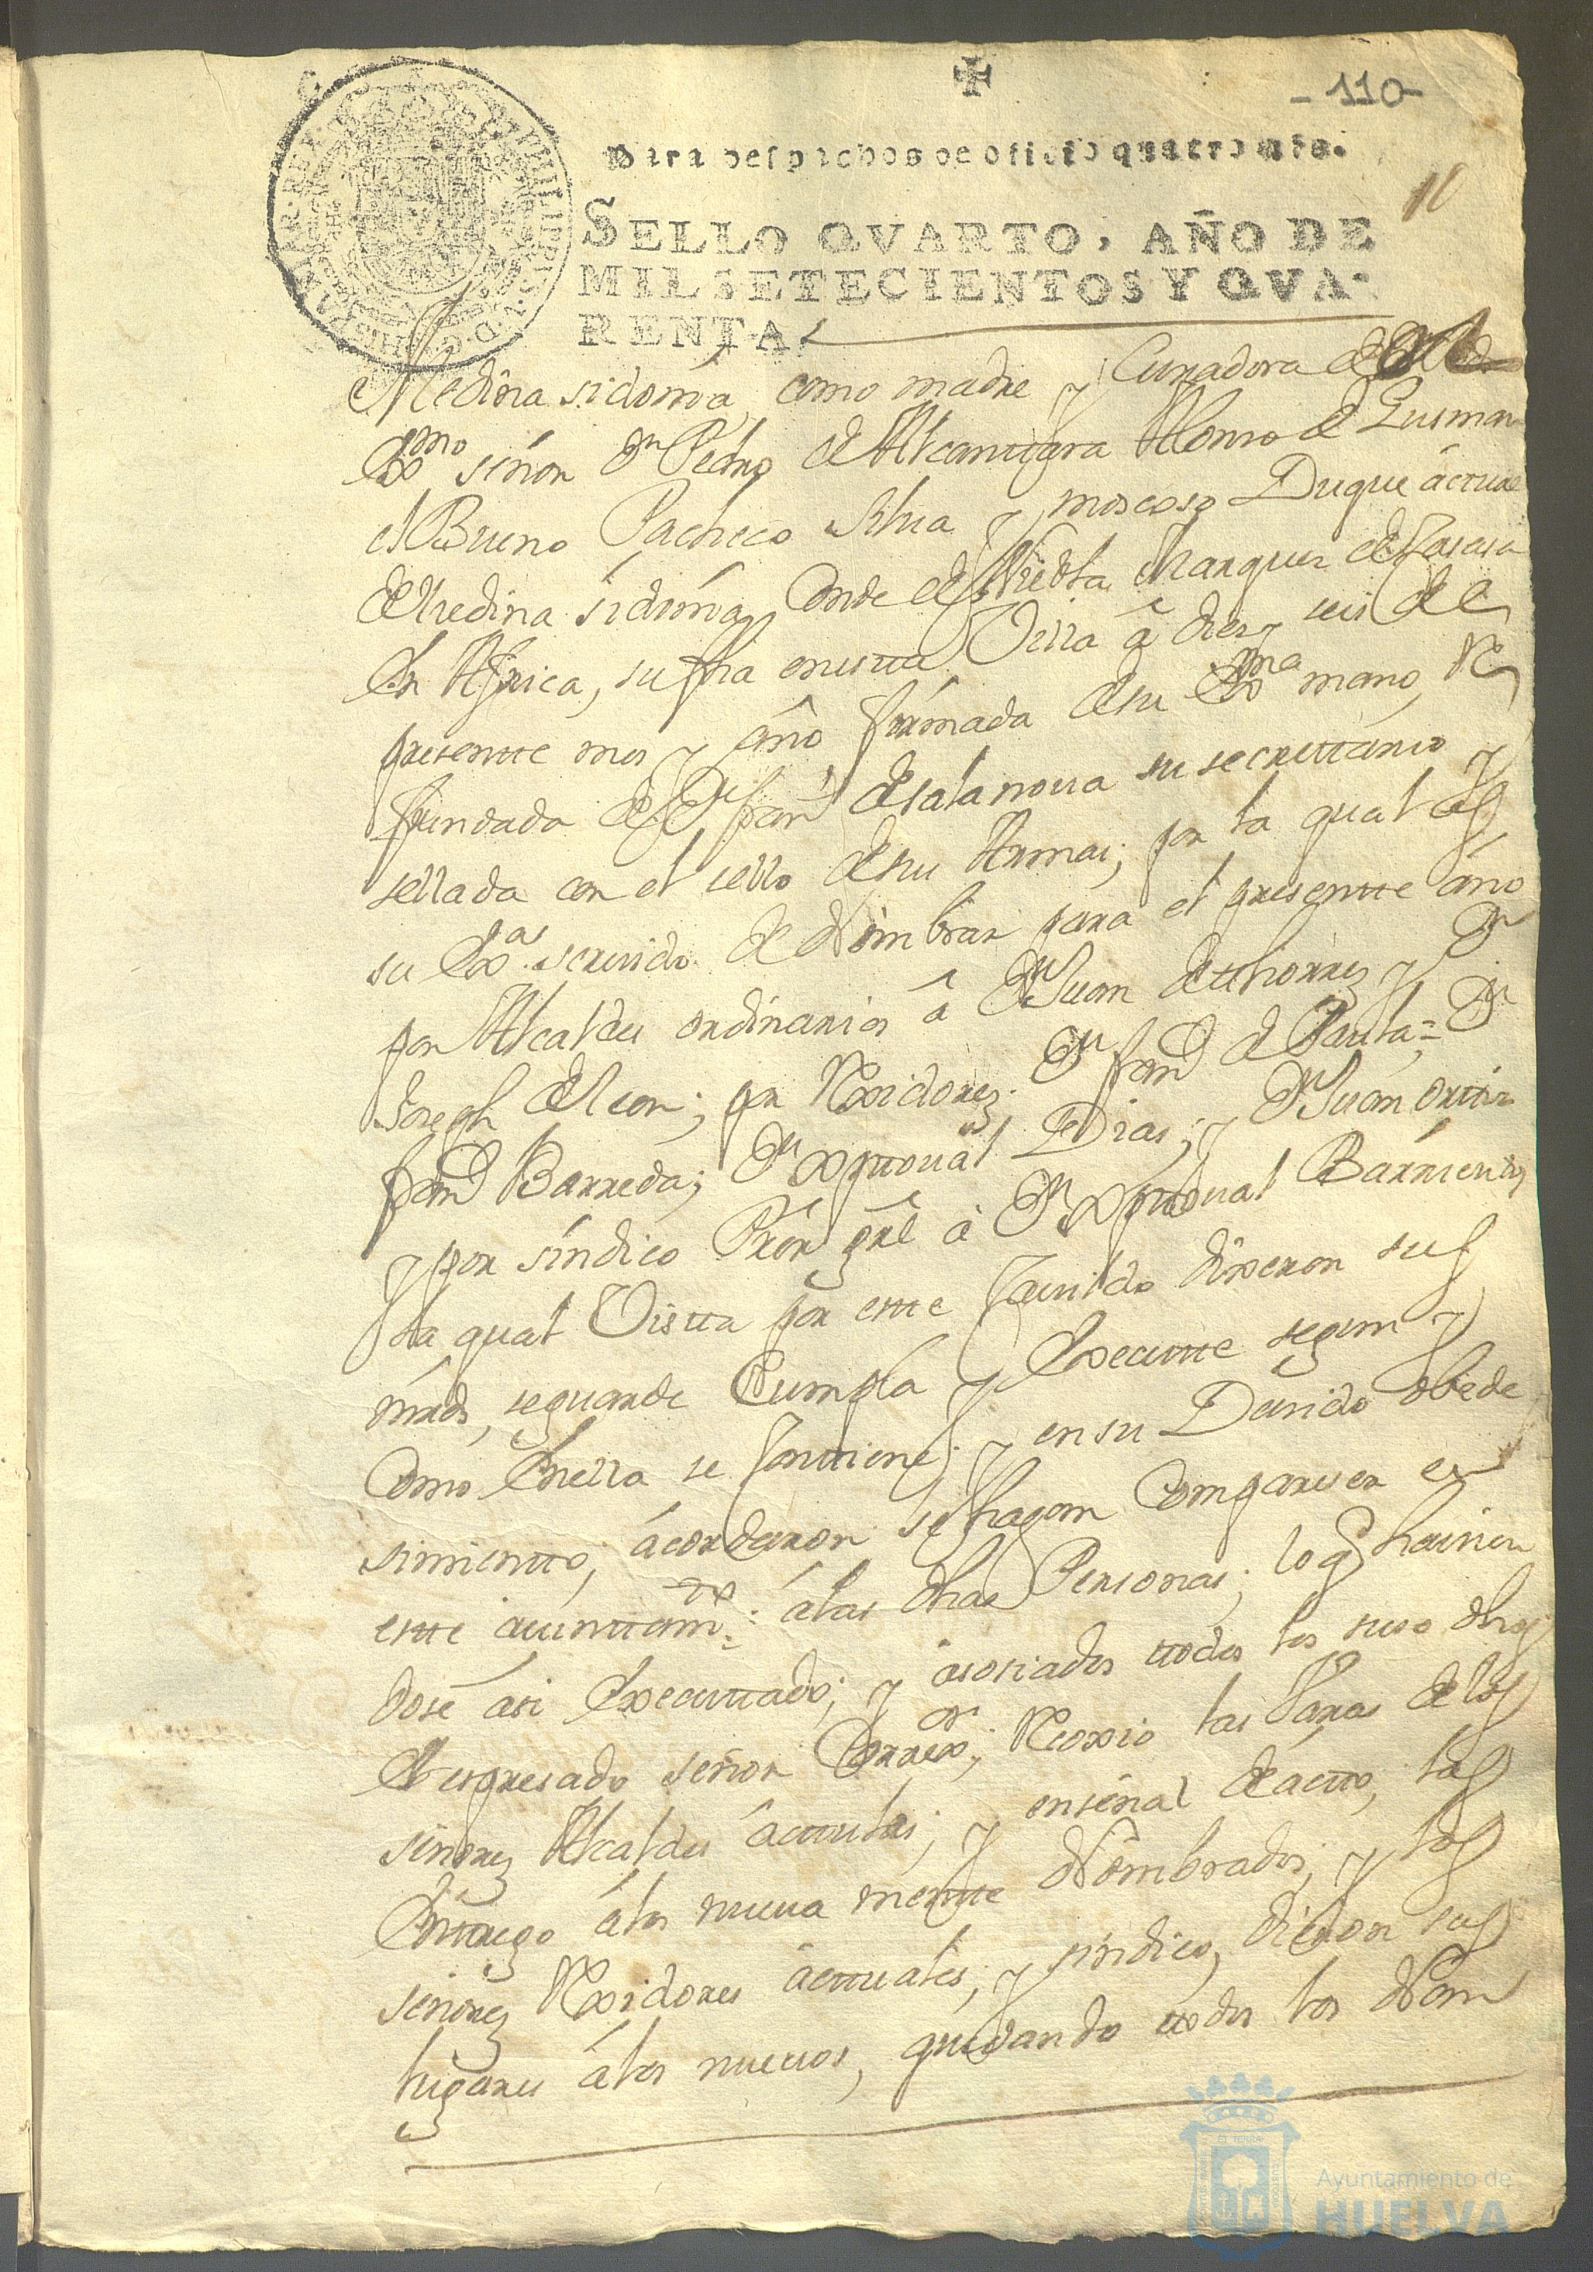 -110-
Para despachos de oficio quatro mrs.
10
SELLO QVARTO, AÑO DE
MIL SETECIENTOS Y QVA-
RENTA.
Medina sidonia, como madre y Curadora del
Exmo señor Dn Pedro de Alcantara Alonso de Gusman
el Bueno Pacheco silua y moscoso Duque actual
de Medina sidonia, Conde de Niebla Marques de Casasa
En Africa, su fha en esta Villa â dies y seis de el
presente mes y año firmada de su Exma mano, Re
frendada de Dn franco de salanoua su secrettario y
sellada con el sello de sus Armas; por la qual es
su Exa seruido de Nombrar para el presentte año
por Alcaldes ordinarios â Dn Juan de thorres y Dn
Joseph de leon; por Rexidores Dn franco de Paula = Dn
franco Barreda; Dn Xptoual Dias; y Dn Juan ortiz
y por síndico Prôr grâl â Dn Xptoual Barrientos
la qual Vistta por este Cauildo dixeron sus
mrds, se guarde Cumpla y Execute segun y
Como En ella se Conttiene; y en su Deuido obede
simiento, acordaron se hagan Compareser en
este aiunttamto: a las dhas Personas; lo q hauien
dose asi Executtado; y asosiados ttodos los suso dhos
El espresado señor Correxor; Recoxio las Varas de los
señores Alcaldes acttuales; y en señal de actto, las
Enttrego a los nueua mentte Nombrados, y los
señores Rexidores acttuales, y sindico, dieron sus
lugares a los nueuos, quedando ttodos los Nom
Ayuntamiento de
HUELVA